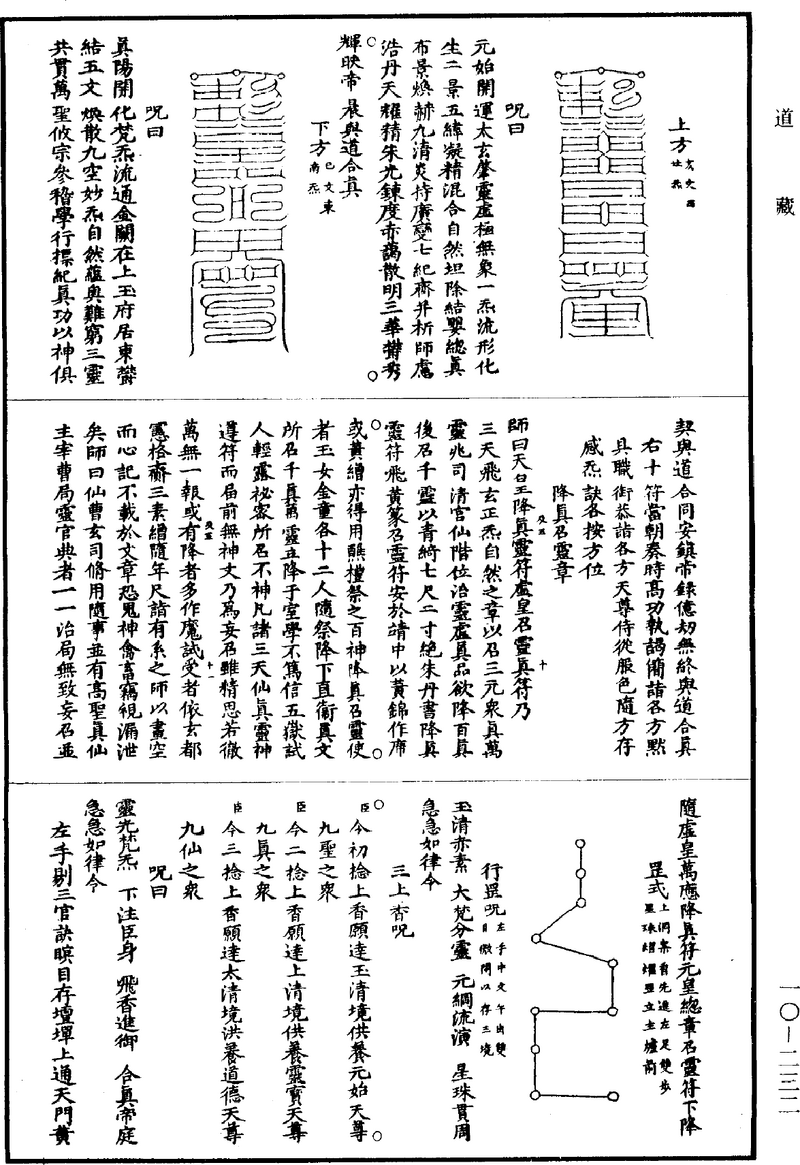 道藏
上方
呪曰
元始開運太玄肇靈虛極無象一炁流形化
生二景五緯凝精混合自然坦除結嬰總眞
布景煥赫九清炎持廣變七紀齊并析師虛
浩丹天耀精朱光鍊度赤藹散明三華欝秀
輝映帝晨與道合眞
下方
呪曰
眞陽開化梵炁流通金闕在上玉府居東欝
結五文煥散九空妙炁自然蘊奧難窮三靈
共貫萬聖攸宗參稽學行標紀眞功以神俱
契與道合同安鎭帝錄億劫無終與道合眞
右十符當朝奏時高功執謁簡詣各方點
具職銜恭詣各方天尊侍從服色隨方存
感炁訣各按方位
降眞召靈章
師曰天皇降眞靈符虛皇召靈眞符乃
三天飛玄正炁自然之章以召三元衆眞萬
靈兆司清宮仙階位治靈虛眞品欲降百眞
後召千靈以青綺七尺二寸絶朱丹書降眞
靈符飛黃篆召靈符安於靖中以黃錦作席
或黃繒亦得用醮禮祭之百神降眞召靈使
者玉女金童各十二人隨祭降下直衞眞文
所召千眞萬靈立降于室學不篤信五嶽試
人輕露祕密所召不神凡諸三天仙眞靈神
遵符而届前無神文乃爲妄召雖精思若徹
萬無一報或有降者多作魔試受者依玄都
憲格齎三素繒隨年尺詣有系之師以畫空
而心記不載於文章恐鬼神禽畜竊視漏泄
矣師曰仙曹玄司脩用隨事並有高聖眞仙
主宰曹局靈官典者一一治局無致妄召並
隨虛皇萬應降眞符元皇總章召靈符下降
罡式
行罡呪
玉清赤素 大梵分靈 元綱流演 星珠貫周
急急如律令
三上香呪
臣今初捻上香願達玉清境供養元始天尊
九聖之衆
臣今二捻上香願達上清境供養靈寶天尊
九眞之衆
臣今三捻上香願達太清境洪養道德天尊
九仙之衆
呪曰
靈光梵炁 下注臣身 飛香進御 合眞帝庭
急急如律令
左手剔三官訣瞑目存壇墠上通天門黃
一〇—二三二